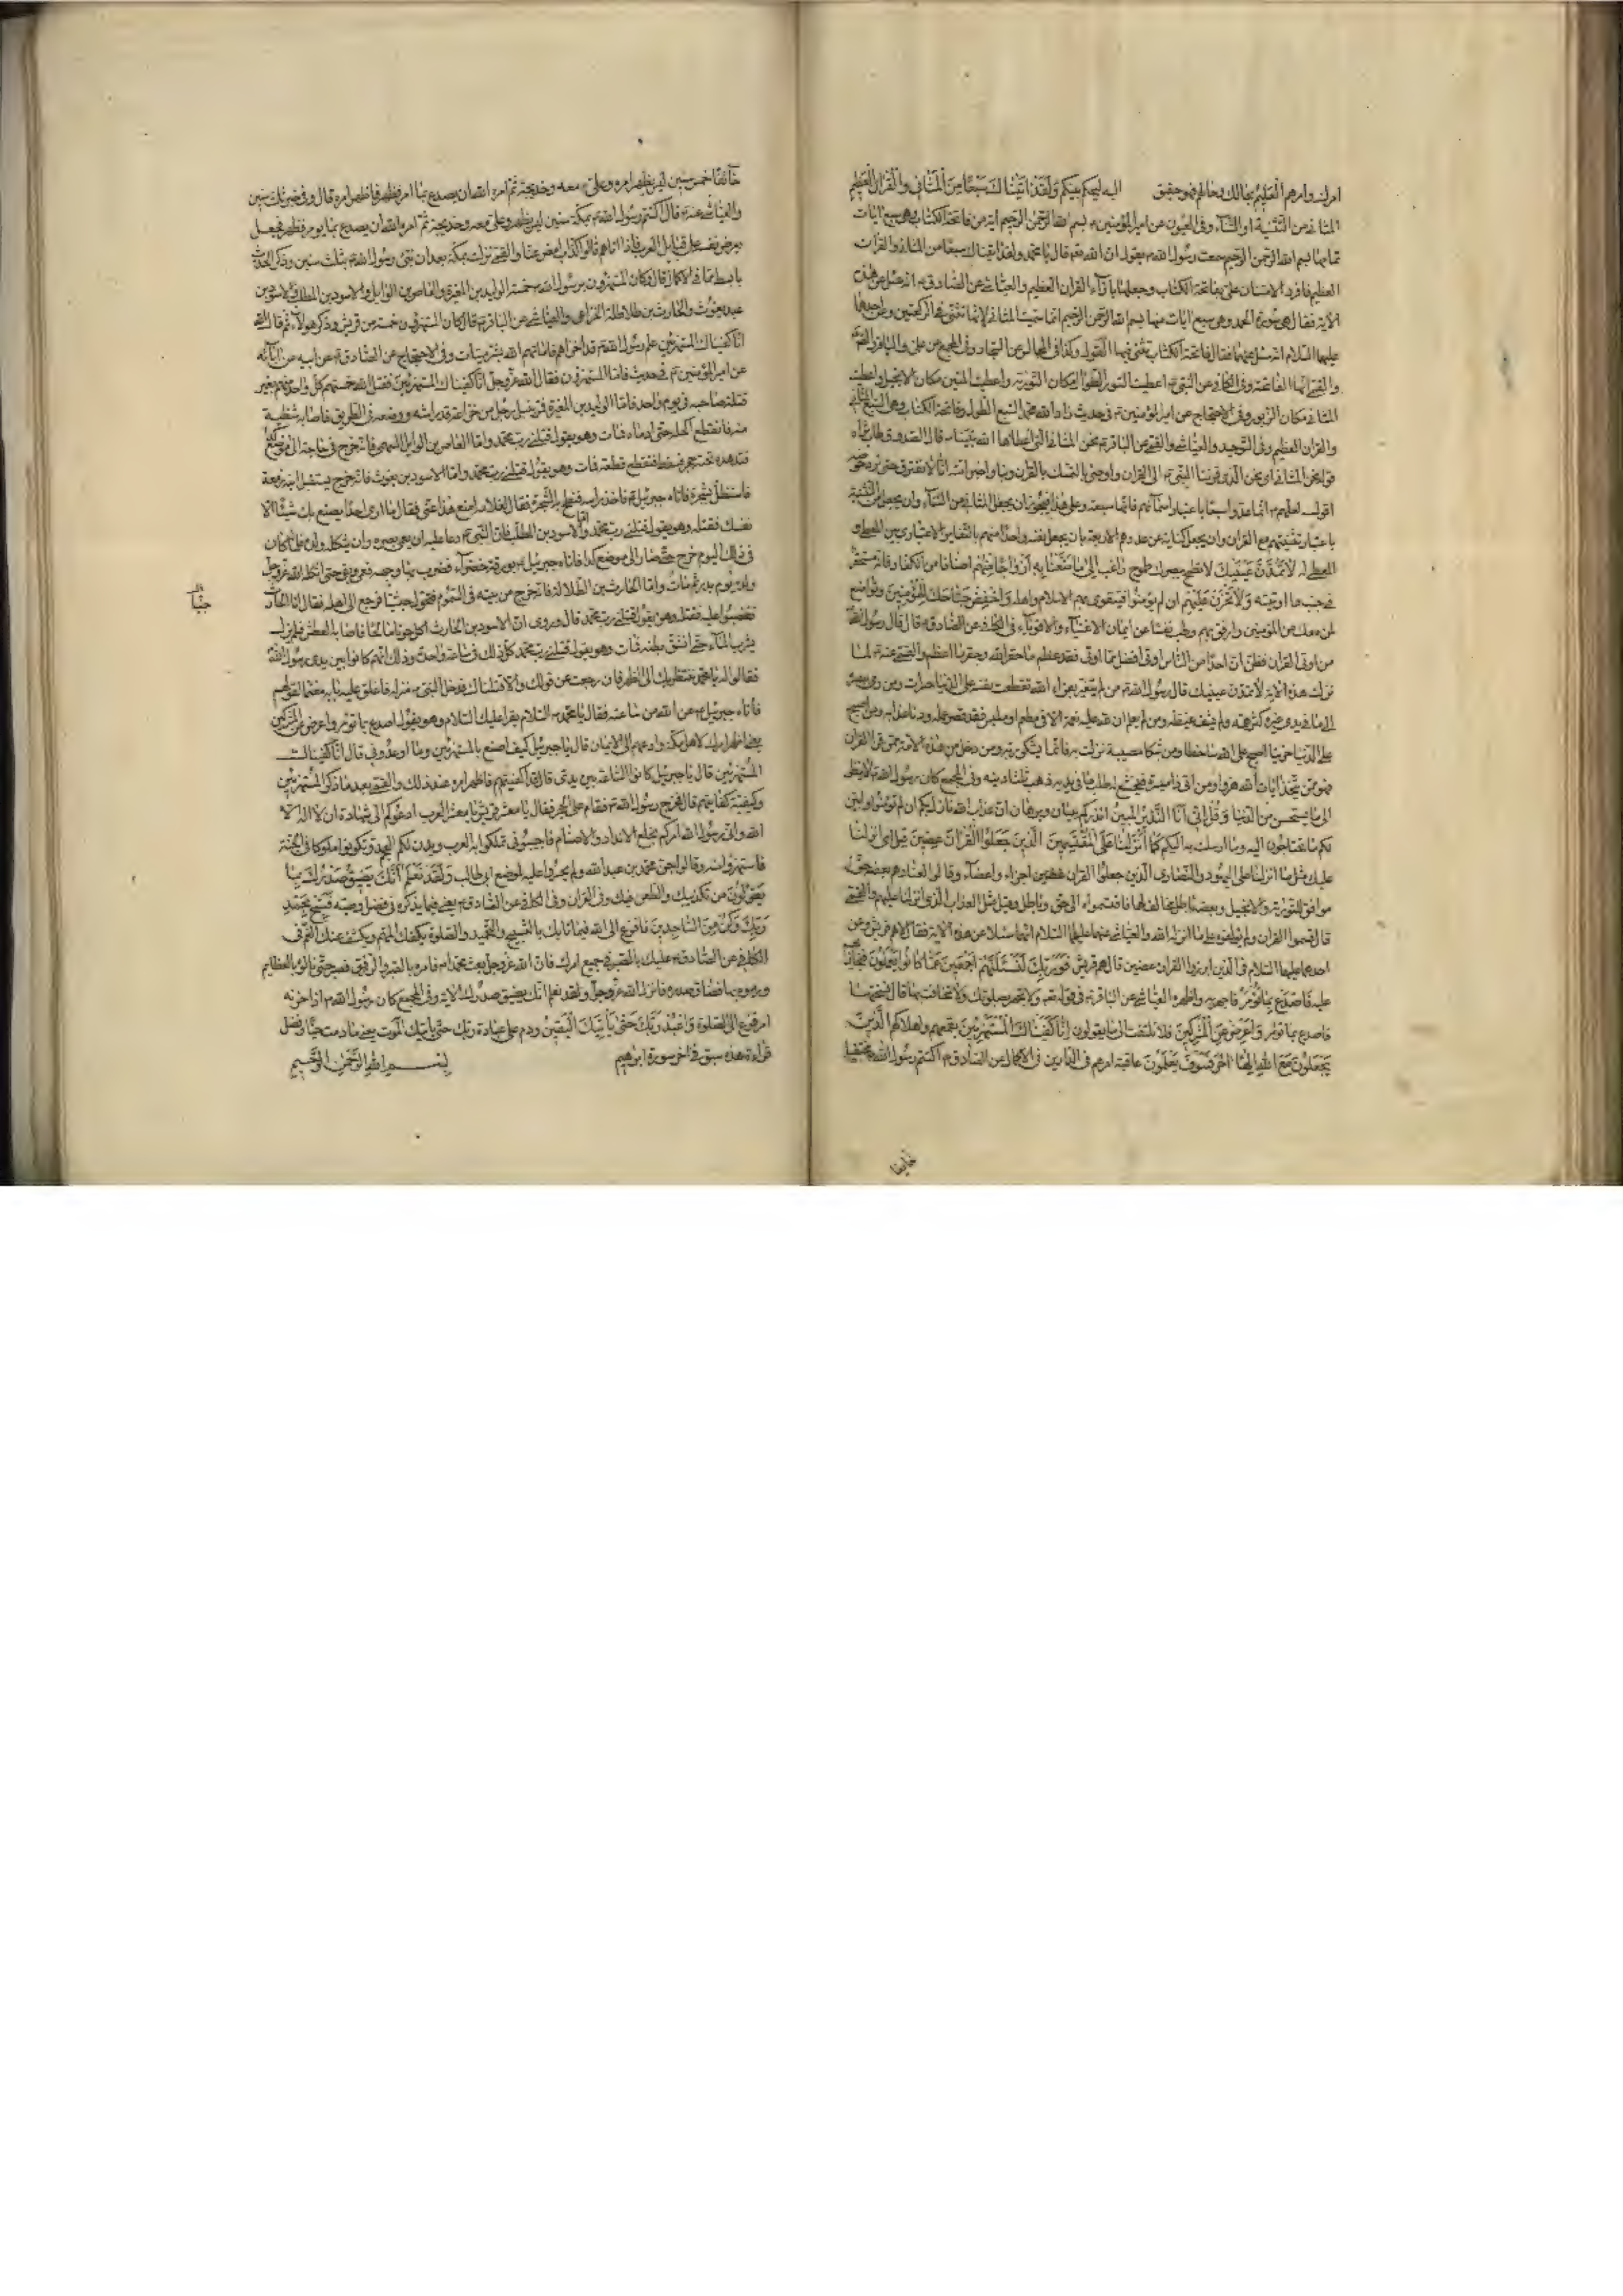 امرك وامرهم العليم بحالك وحالهم فهو حقيق اليه ليحكم بينكم ولقد اتيناك سبعا من المثاني والقرآن العظيم
المثاني من التثنية او الثناء وفي العيون عن امير المؤمنين بسم الله الرحمن الرحيم اية من فاتحة الكتاب وهي سبع ايات
تمامها بسم الله الرحمن الرحيم سمعت رسول الله يقول ان الله قال يا محمد ولقد اتيناك سبعا من المثاني والقران
العظيم فافرد الامتنان علي بفاتحة الكتاب وجعلها بازاء القران العظيم والعياشي عن الصادق انه سئل عن هذه
الاية فقال هي سورة الحمد وهي سبع ايات منها بسم الله الرحمن الرحيم انما سميت المثاني لانها تثنى في الركعتين وعن احدهما
عليهما السلام انه سئل عنها فقال فاتحة الكتاب يثنى فيها القول وكذا في المجالس عن السجاد وفي المجمع عن علي والباقر
والقمي انها الفاتحة وفي الكافي عن النبي اعطيت السور الطوال مكان التورية واعطيت المئين مكان الانجيل واعطيت
المثاني مكان الزبور وفي الاحتجاج عن امير المؤمنين في حديث زاد الله محمدا السبع الطول وفاتحة الكتاب وهي السبع المثاني
والقران العظيم وفي التوحيد والعياشي والقمي عن الباقر نحن المثاني التي اعطاها الله نبينا قال الصدوق طاب ثراه
قوله نحن المثاني اي نحن الذي قرننا النبي الى القران واوصى بالتمسك بالقران وبنا واخبر امته انا لا نفترق حتى نرد حوضه
اقول لعلهم انما عدوا سبعا باعتبار اسمائهم فانها سبعة وعلى هذا فيجوز ان يجعل المثاني من الثناء وان يجعل من التثنية
باعتبار تثنيتهم مع القران وان يجعل كناية عن عددهم الاربعة عشر بان يجعل نفسه واحدا منهم بالتغاير الاعتباري بين المعطي و
المعطى له لا تمدن عينيك لا تطمح ببصرك طموح راغب الى ما متعنا به ازواجا منهم اصنافا من الكفار فانه مستحقر
في جنب ما اوتيته ولا تحزن عليهم ان لم يؤمنوا فيتقوى بهم الاسلام واهله واخفض جناحك للمؤمنين وتواضع
لمن معك من المؤمنين وارفق بهم وطب نفسا عن ايمان الاغنياء والاقوياء في الكافي عن الصادق قال قال رسول الله
من اوتي القران فظن ان احدا من الناس اوتي افضل مما اوتي فقد عظم ما حقر الله وحقر ما عظم الله والقمي عنه لما
نزلت هذه الاية لا تمدن عينيك قال رسول الله من لم يتعز بعزاء الله تقطعت نفسه على الدنيا حسرات ومن رمى ببصره
الى ما في يدي غيره كثر همه ولم يشف غيظه ومن لم يعلم ان لله عليه نعمة الا في مطعم او ملبس فقد قصر عمله ودنا عذابه ومن اصبح
على الدنيا حزينا اصبح على الله ساخطا ومن شكا مصيبة نزلت به فانما يشكو ربه ومن دخل من هذه الامة ممن قرأ القران
فهو ممن يتخذ ايات الله هزوا ومن اتى ذا ميسرة فيخشع له طلب ما في يديه ذهب ثلثا دينه وفي المجمع كان رسول الله لا ينظر
الى ما يستحسن من الدنيا وقل اني انا النذير المبين انذركم ببيان وبرهان ان عذاب الله نازل بكم ان لم تؤمنوا وابين
لكم ما تحتاجون اليه وما ارسلت به اليكم كما انزلنا على المقتسمين الذين جعلوا القران عضين قيل اي انزلنا
عليك مثل ما انزلنا على اليهود والنصارى الذين جعلوا القران عضين اجزاء واعضاء وقالوا لعنادهم بعضه حق
موافق للتورية والانجيل وبعضه باطل مخالف لهما فاقتسموه الى حق وباطل وقيل مثل العذاب الذي انزلنا عليهم والقمي
قال قسموا القران ولم يؤلفوه على ما انزله الله والعياشي عنهما عليهما السلام انهما سئلا عن هذه الاية فقالا هم قريش وعن
احدهما عليهما السلام في الذين ابرزوا القران عضين قال هم قريش فوربك لنسئلنهم اجمعين عما كانوا يعملون فنجازيهم
عليه فاصدع بما تؤمر فاجهر به واظهره العياشي عن الباقر في قوله ولا تجهر بصلوتك ولا تخافت بها قال نسختها
فاصدع بما تؤمر واعرض عن المشركين فلا تلتفت الى ما يقولون انا كفيناك المستهزئين بقمعهم واهلاكهم الذين
يجعلون مع الله الها اخر فسوف يعلمون عاقبة امرهم في الدارين في الاكمال عن الصادق اكتتم رسول الله مختفيا
خايفا
خائفا خمس سنين ليس يظهر امره وعلي معه وخديجة ثم امره الله ان يصدع بما امر فظهر فاظهر امره قال وفي خبر ثلث سنين
والعياشي عنه قال اكتتم رسول الله بمكة سنين ليس يظهر وعلي معه وخديجة ثم امره الله ان يصدع بما يؤمر فظهر فجعل
يعرض نفسه على قبايل العرب فاذا اتاهم قالوا كذاب امض عنا والقمي نزلت بمكة بعد ان نبئ رسول الله بثلث سنين وذكر الحديث
بابسط مما في الاكمال قال وكان المستهزؤن برسول الله خمسة الوليد بن المغيرة والعاص بن الوايل والاسود بن المطلب والاسود بن
عبد يغوث والحارث بن طلاطلة الخزاعي والعياشي عن الباقر قال كان المستهزؤن خمسة من قريش وذكر هولاء ثم قال فلما قال الله
انا كفيناك المستهزئين علم رسول الله انه قد اخزاهم فاماتهم الله بشر ميتات وفي الاحتجاج عن الصادق عن ابيه عن ابائه
عن امير المؤمنين في حديث فاما المستهزؤن فقال الله عز وجل انا كفيناك المستهزئين فقتل الله خمستهم كل واحد منهم بغير
قتلة صاحبه في يوم واحد فاما الوليد بن المغيرة فمر بنبل لرجل من خزاعة قد راشه ووضعه في الطريق فاصابه شظية
منه فانقطع اكحله حتى ادماه فمات وهو يقول قتلني رب محمد واما العاص بن الوايل السهمي فانه خرج في حاجة الى موضع
فتدهده تحته حجر فسقط فتقطع قطعة فمات وهو يقول قتلني رب محمد واما الاسود بن يغوث فانه خرج يستقبل ابنه زمعة
فاستظل بشجرة فاتاه جبرئيل فاخذ راسه فنطح به الشجرة فقال لغلامه امنع هذا عني فقال ما ارى احدا يصنع بك شيئا الا
نفسك فقتله وهو يقول قتلني رب محمد واما الاسود بن المطلب فان النبي دعا عليه ان يعمي بصره وان يثكله ولده فلما كان
في ذلك اليوم خرج حتى صار الى موضع كذا فاتاه جبرئيل بورقة خضراء فضرب بها وجهه فعمي وبقي حتى اثكله الله عز وجل
ولده يوم بدر ثم مات واما الحارث بن الطلاطلة فانه خرج من بيته في السموم فتحول حبشيا فرجع الى اهله فقال انا الحارث
فغضبوا عليه فقتلوه وهو يقول قتلني رب محمد قال وروى ان الاسود بن الحارث اكل حوتا مالحا فاصابه العطش فلم يزل
يشرب الماء حتى انشق بطنه فمات وهو يقول قتلني رب محمد كل ذلك في ساعة واحدة وذلك انهم كانوا بين يدي رسول الله
فقالوا له يا محمد ننتظر بك الى الظهر فان رجعت عن قولك والا قتلناك فدخل النبي منزله فاغلق عليه بابه مغتما لقولهم
فأتاه جبرئيل عن الله من ساعته فقال يا محمد السلام يقرأ عليك السلام وهو يقول اصدع بما تؤمر واعرض عن المشركين
يعني اظهر امرك لاهل مكة وادعهم الى الايمان قال يا جبرئيل كيف اصنع بالمستهزئين وما اوعدوني قال انا كفيناك
المستهزئين قال يا جبرئيل كانوا الساعة بين يدي قال قد كفيتهم فاظهر امره عند ذلك والقمي بعد ما ذكر المستهزئين
وكيفية كفايتهم قال فخرج رسول الله فقام على الحجر فقال يا معشر قريش يا معشر العرب ادعوكم الى شهادة ان لا اله الا
الله واني رسول الله امركم بخلع الانداد والاصنام فاجيبوني تملكوا بها العرب ويدين لكم العجم وتكونوا ملوكا في الجنة
فاستهزؤا منه وقالوا جن محمد بن عبد الله ولم يجسروا عليه لموضع ابي طالب ولقد نعلم انك يضيق صدرك بما
يقولون من تكذيبك والطعن فيك وفي القرآن وفي الكافي عن الصادق يعني فيما يذكره في فضل وصيه فسبح بحمد
ربك وكن من الساجدين فافزع الى الله فيما نابك بالتسبيح والتحميد والصلوة يكفك المهم ويكشف عنك الغم في
الكافي عن الصادق عليك بالصبر في جميع امورك فان الله عز وجل بعث محمدا فامره بالصبر والرفق فصبر حتى نالوه بالعظايم
ورموه بها فضاق صدره فانزل الله عز وجل ولقد نعلم انك يضيق صدرك الاية وفي المجمع كان رسول الله اذا حزنه
امر فزع الى الصلوة واعبد ربك حتى يأتيك اليقين ودم على عبادة ربك حتى يأتيك الموت يعني ما دمت حيا وفضل
قراءة هذه سبق في اخر سورة ابرهيم بسم الله الرحمن الرحيم